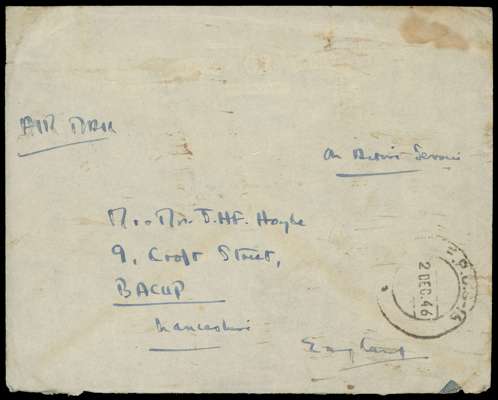 AIR MAIL
On Active Service
Mr. & Mrs. J. H. Hoyle
9, Croft Street,
BACUP
Lancashire
England
2 DEC. 46